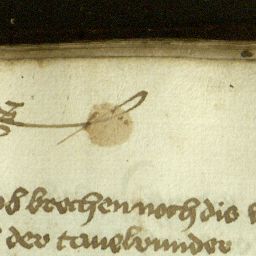 ob brechen noch dis
der tauelrunder